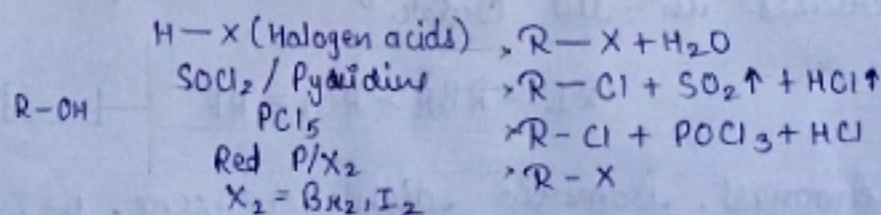 H-X (Halogen acids) → R-X + H₂O
SOCl₂ / Pyridine → R-Cl + SO₂↑ + HCl↑
R-OH
PCl₅ → R-Cl + POCl₃ + HCl
Red P/X₂ → R-X
X₂ = Br₂, I₂